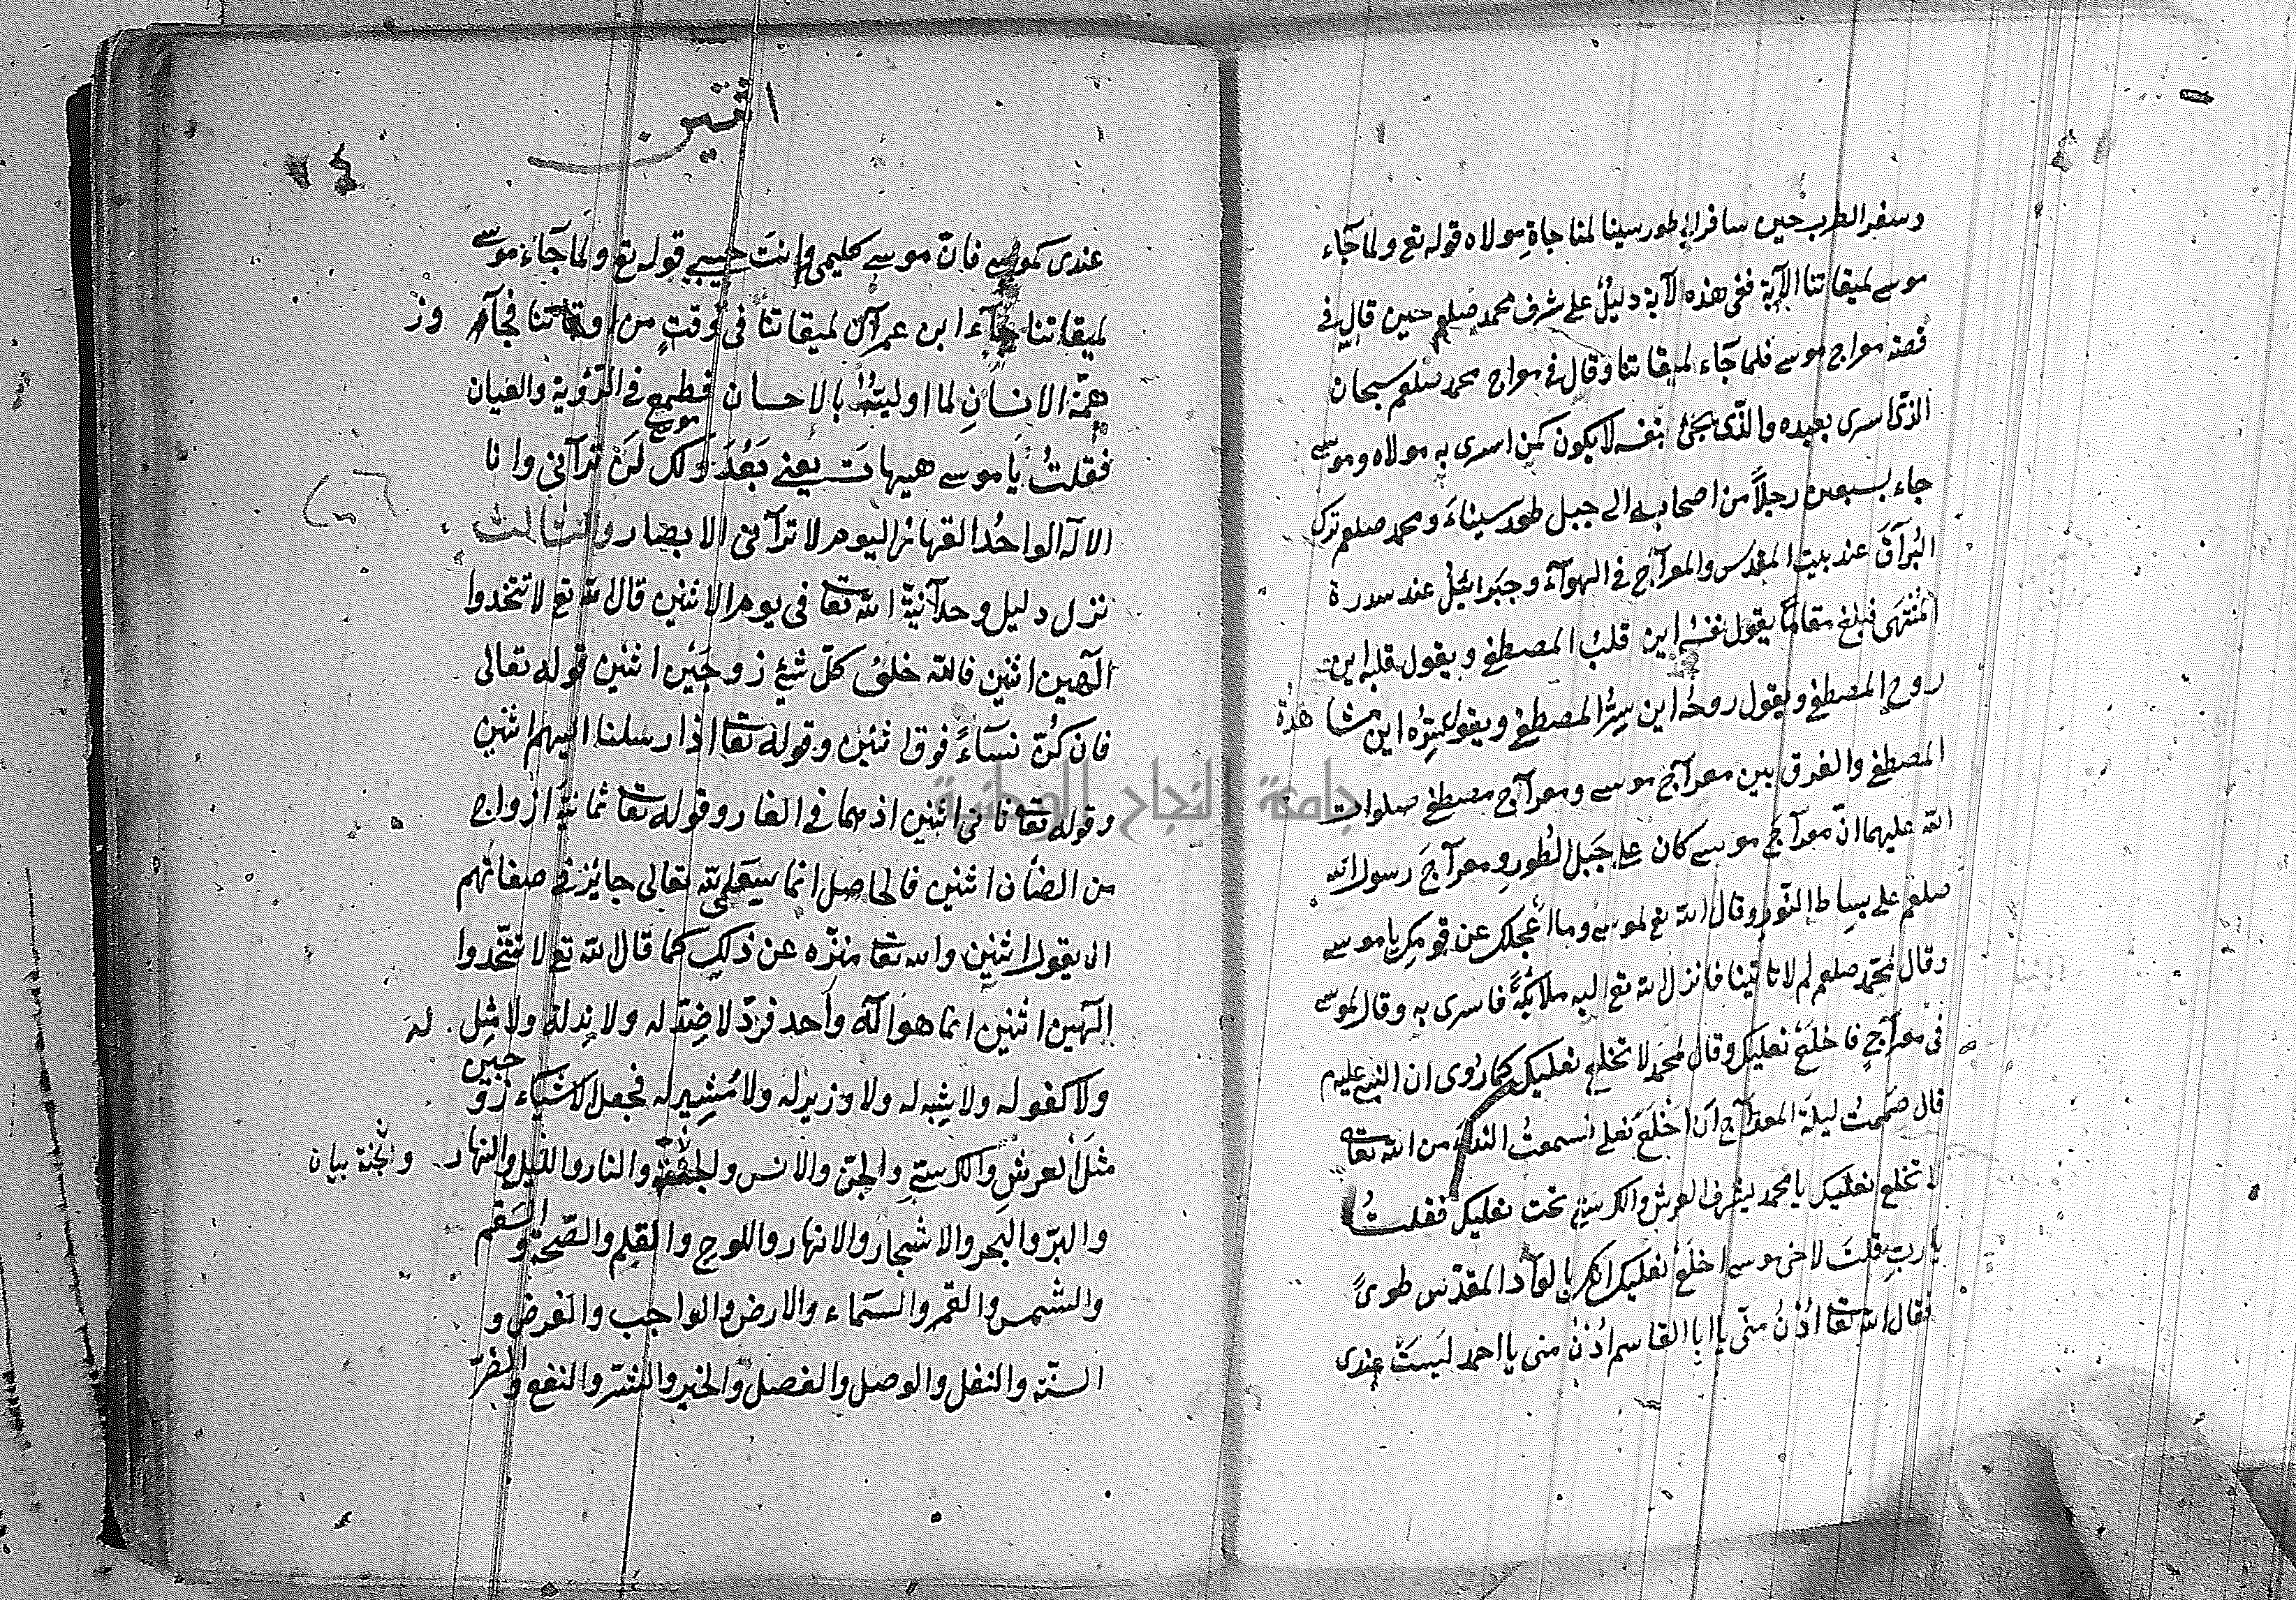 وسفر الطرب حين سافر الى طور سينا لمناجاة مولاه قوله تع ولما جآء
موسى لميقاتنا الآية ففى هذه لآية دليل على شرف محمد صلعم حين قال فى
قصة معراج موسى فلما جآء لميقاتنا وقال فى معراج محمد صلعم سبحان
الذى اسرى بعبده والذى يجئ بنفسه لا يكون كمن اسرى به مولاه وموسى
جاء بسبعين رجلاً من اصحابه الى جبل طور سيناء ومحمد صلعم ترك
البُرآق عند بيت المقدس والمعرآج فى الهوآء وجبرائيل عند سدرة
المنتهى فبلغ مقاما يقول نفسه اين قلب المصطفى ويقول قلبه اين
روح المصطفى ويقول روحُه اين سِرُّ المصطفى ويقول سِرُّه اين مشاهدة
المصطفى والفرق بين معرآج موسى ومعرآج مصطفى صلوات
الله عليهما انّ معرآجَ موسى كان على جَبَل الطُور ومعرآجَ رسول الله
صلعم على بساط النّور وقال الله تع لموسى وما اَعْجلك عن قومك يا موسى
وقال لمحمّد صلعم لم لا تاتينا فانزل الله تع اليه ملائكةً فاسرى به وقال لموسى
فى معرآجٍ فاخْلَعْ نعليك وقال لمحمد لا تخلع نعليك كما رُوى ان النبى عليم
قال صَمّمتُ ليلة المعرآج اَن اَخْلَعَ نعلى فسمعتُ الندآء من الله تعا
لا تخلع نعليك يا محمد ليشرف العرش والكرسى تحت نعليك فقلتُ
يا ربِّ قلتَ لاخى موسى اخْلَعْ نعليك انك بالوآد المقدّس طوىً
فقال الله تعا اُدْنُ منّى يا ابا القاسم اُدْنُ منى يا احمد لَيسَتَ عندى
اثنين
٢٤
عندى كموسى فانّ موسى كليمى وانتَ حبيبى قوله تع ولما جآء موسى
لميقاتنا جآء ابن عمرآن لميقاتنا فى وقتٍ من اوقاتنا فجآء وز
همّة الانسانِ لما اوليتُه بالاحسان فطمع موسى فى الرّؤية والعيان
فقلتُ يا موسى هيهاتَ يعنى بَعُدَ ذلك لَنْ ترآنى وانا
الاله الواحُد القهار اليوم لا ترآنى الابصار والثالث
نزل دليل وحدآنيّة الله تعا فى يوم الاثنين قال الله تع لا تتخذوا
الٓهين اثنين فالله خلق كلّ شئ زوجَيْن اثنين قوله تعالى
فان كُنّ نسآءً فوق اثنين وقوله تعا اذ ارسلنا اليهم اثنين
وقوله تعا ثانى اثنين اذ هما فى الغار وقوله تعا ثمانية ازواج
من الضأن اثنين فالحاصل انما سِوَى الله تعالى جايز فى صفاتهم
ان يقول اثنين والله تعا منزّه عن ذلك كما قال الله تع لا تتّخذوا
الٓهين اثنين انما هو الٓه وآحد فردٌ لا ضِدّ له ولا نِدّ له ولا مثل له
ولا كفو له ولا شِبه له ولا وزير له ولا مُشير له فجعل لاشيآء زوجين
مثلَ العرشِ والكرسىِّ والجنّ والانس والنار والليل والنهار والجنة بيان
والبرّ والبحر والاشجار والانهار واللوح والقلم والصّحة والسّقم
والشمس والقمر والسمآء والارض والواجب والفرض و
السنّة والنفل والوصل والفصل والخير والشرّ والنفع والضرّ
جامعة النجاح الوطنية